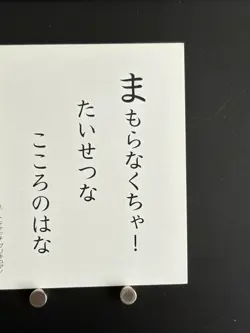 まもらなくちゃ！
たいせつな
こころのはな